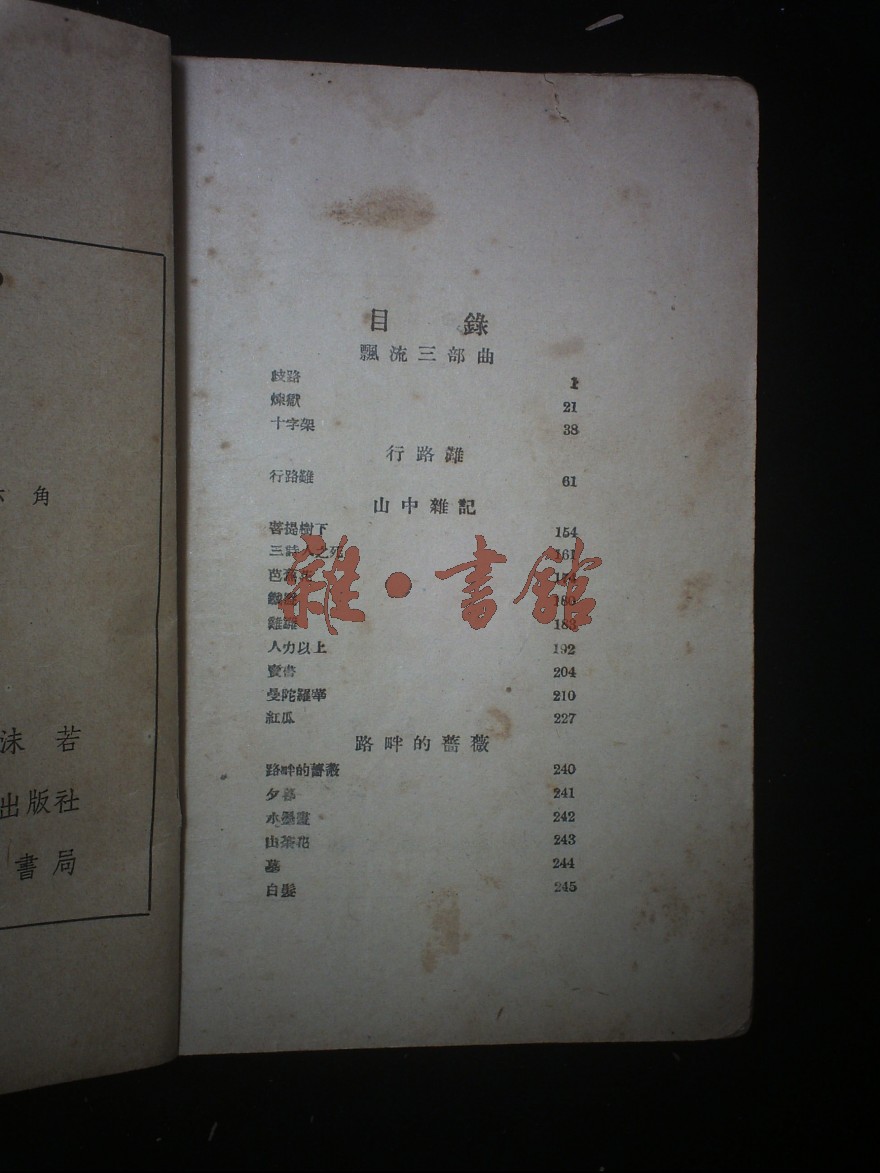 角
沫若
出版社
書局
目錄
飄流三部曲
歧路 1
煉獄 21
十字架 38
行路難
行路難 61
山中雜記
菩提樹下 154
三詩人之死 161
芭蕉
180
雞雛 183
人力以上 192
賣書 204
曼陀羅華 210
紅瓜 227
路畔的薔薇
路畔的薔薇 240
夕暮 241
水墨畫 242
山茶花 243
墓 244
白髮 245
雜·書館